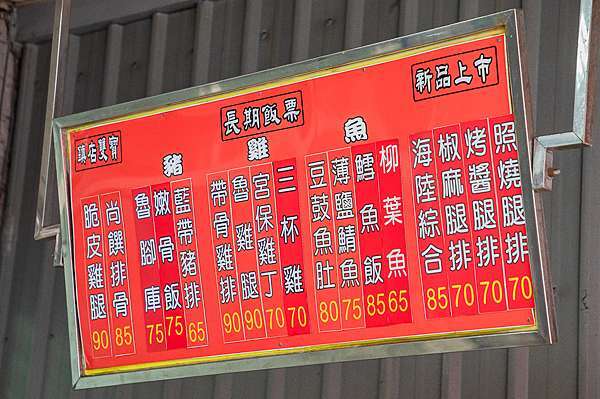 鎮店雙寶
長期飯票
新品上市
豬
雞
魚
脆皮雞腿 90
尚饌排骨 85
魯腳庫 75
嫩骨飯 75
藍帶豬排 65
帶骨雞排 90
魯雞腿 90
宮保雞丁 70
三杯雞 70
豆鼓魚肚 80
薄鹽鯖魚 75
鱈魚飯 85
柳葉魚 65
海陸綜合 85
椒麻腿排 70
烤醬腿排 70
照燒腿排 70